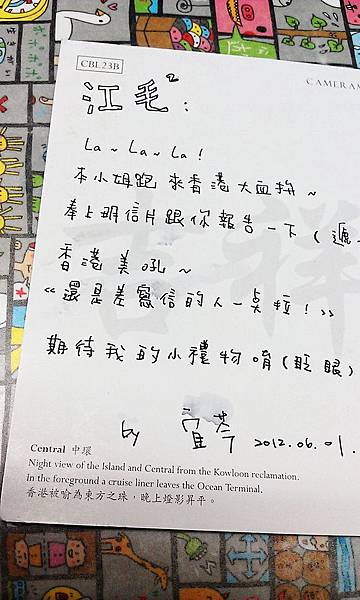 CBL 23B
CAMERAM
江毛²:
La~La~La!
本小姐跑來香港大血拚~
奉上明信片跟你報告一下(遞
香港美吼~
«還是差寫信的人一點啦!»
期待我的小禮物唷(眨眼)
by 宜芩 2012.06.01.
吉祥
Central 中環
Night view of the Island and Central from the Kowloon reclamation.
in the foreground a cruise liner leaves the Ocean Terminal.
香港被喻為東方之珠，晚上燈影昇平。